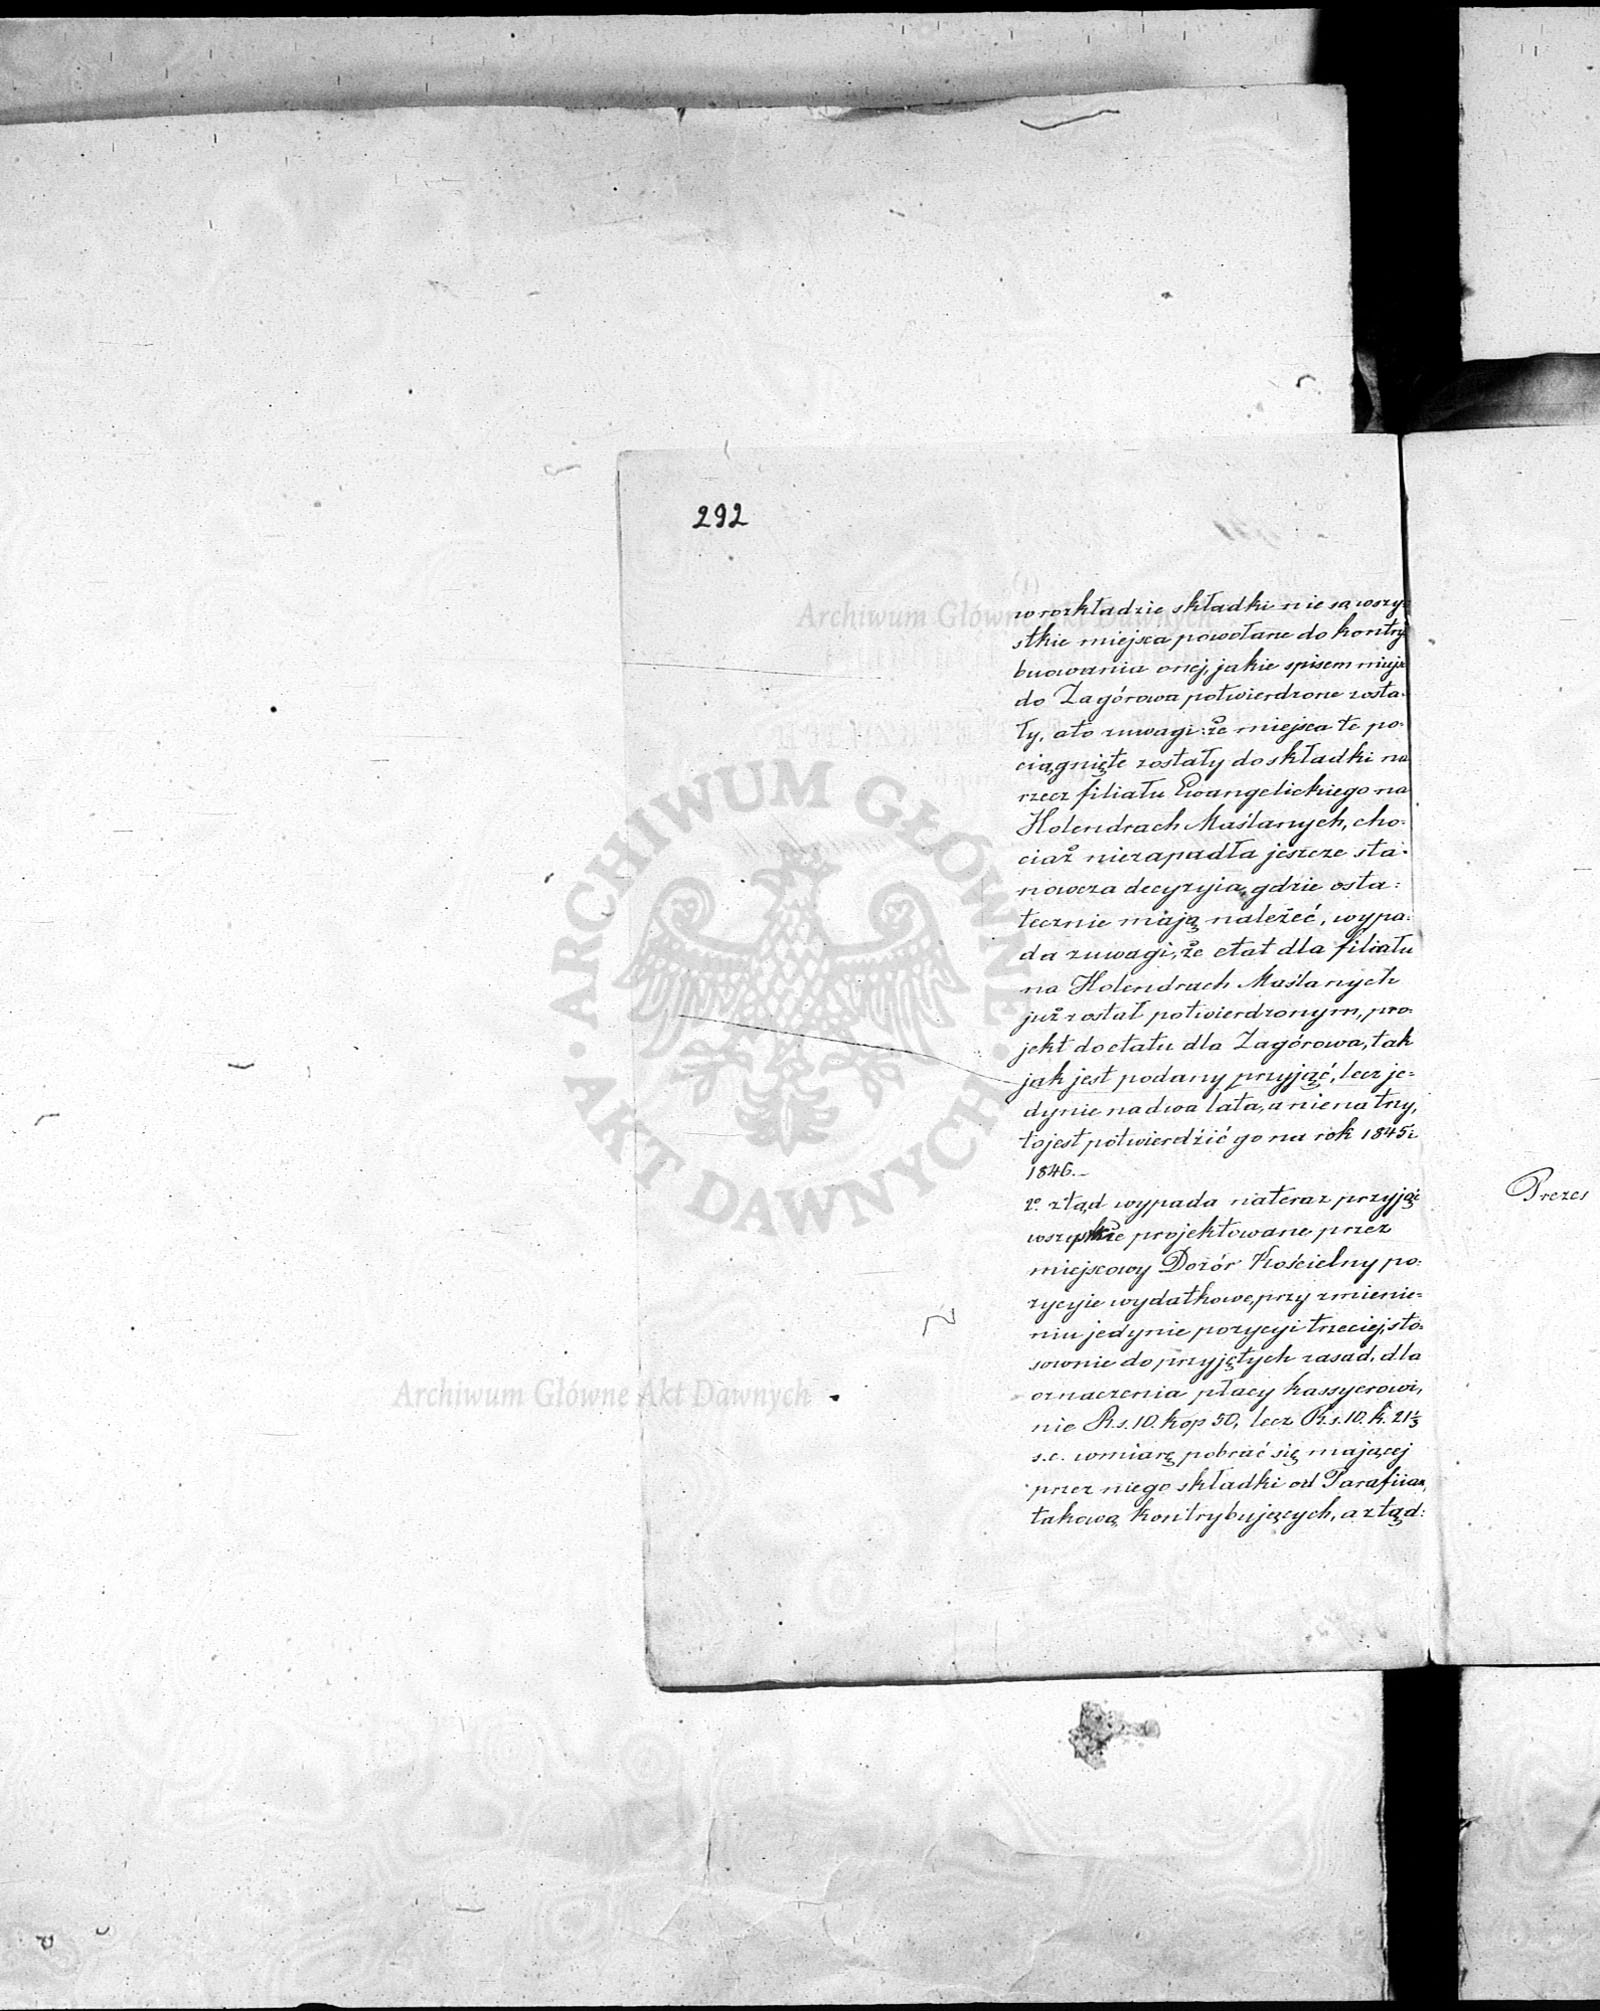 292
w rozkładzie składki nie są wszy-
stkie miejsca powołane do kontry
buowania onej, jakie spisem miejsc
do Zagórowa potwierdzone zosta-
ły, a to z uwagi: że miejsca te po-
ciągnięte zostały do składki na
rzecz filiału Ewangelickiego na
Holendrach Maślanych, cho-
ciaż niezapadła jeszcze sta-
nowcza decyzyia, gdzie osta-
tecznie mają należeć, wypa-
da z uwagi, że etat dla filiału
na Holendrach Maślanych
już został potwierdzonym, pro-
jekt do etatu dla Zagórowa, tak
jak jest podany przyjąć, lecz je-
dynie na dwa lata, a nie na trzy,
to jest potwierdzić go na rok 1845 i
1846.-
2º. ztąd wypada na teraz przyjąć
wszystkie projektowane przez
miejscowy Dozór Kościelny po-
zycyie wydatkowe, przy zmienie-
niu jedynie pozycyi trzeciej, sto-
sownie do przyjętych zasad, dla
oznaczenia płacy kassyerowi,
nie R.s. 10. kop 50, lecz R.s. 10. k. 21½
s.c. w miarę pobrać się mającej
przez niego składki od Parafiian,
takową kontrybujących, a ztąd:
Prezes
Archiwum Główne Akt Dawnych
Archiwum Główne Akt Dawnych
ARCHIWUM GŁÓWNE
AKT DAWNYCH